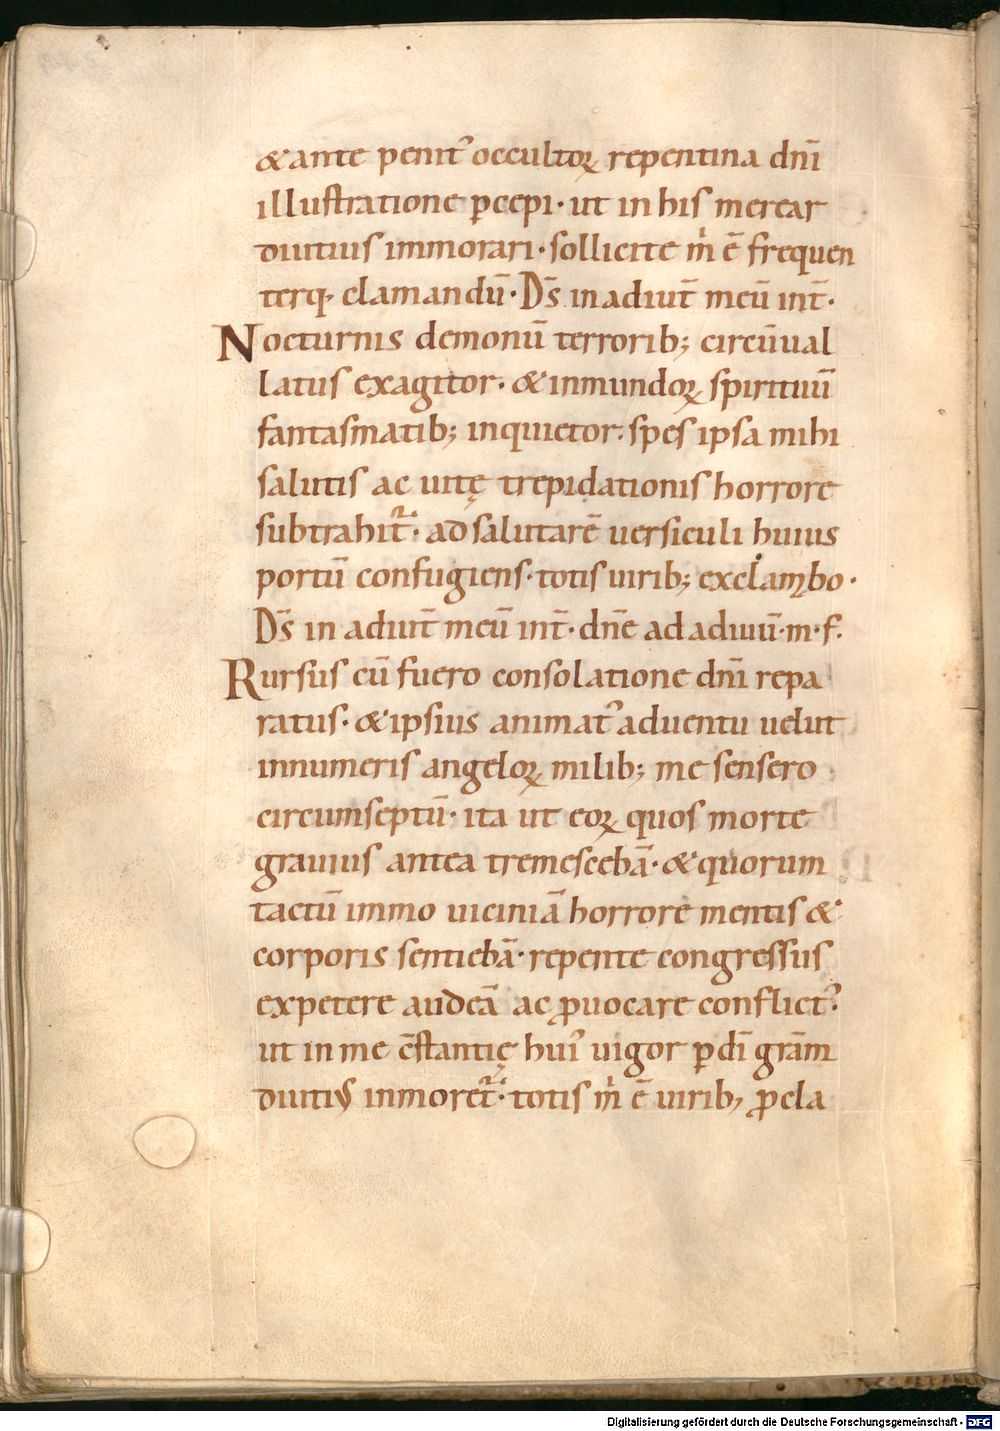 &ante penit᾽ occultoꝝ repentina dnı̄
illustratione p̄cepi· ut in his merear
diutius immorari· sollicite m̍ ē frequen
terq· clamandū· Ds̄ in adiut̄ meū int̄·
Nocturnis demonū terrorib; circūual
latus exagitor· & inmundoꝝ spirituū
fantasmatib; inquietor· spes ipsa mihi
salutis ac uitę trepidationis horrore
subtrahit᷑· ad salutarē uersiculi huius
portū confugiens· totis uirib; exclambo·
Ds̄ in adiut̄ meū int̄· dnē ad adiuuū·m·f·
Rursus cū fuero consolatione dnı̄ repa
ratus· & ipsius animat᾽ aduentu uelut
innumeris angeloꝝ milib; me sensero
circumseptū· ita ut eoꝝ quos morte
grauius antea tremescebā· & quorum
tactū immo uiciniā horrore mentis &
corporis sentiebā· repente congressus
expetere audeā ac ꝓuocare conflict᾽·
ut in me c̄stantię hui᾽ uigor p dı̄ grām
diutius inmoret᷑· totis m̍ ē uirib; ꝓcla
Digitalisierung gefördert durch die Deutsche Forschungsgemeinschaft - DFG